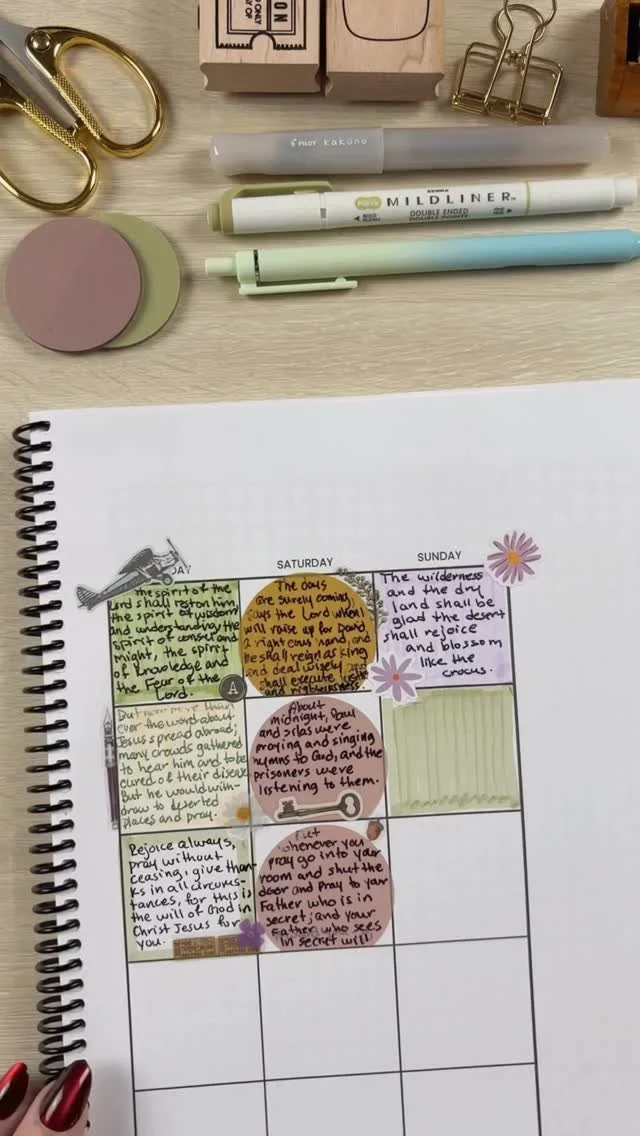 ON
ONLY
OF
PILOT kakuno
ZEBRA
MILDLINER
DOUBLE ENDED
DOUBLE POINTE
AY
SATURDAY
SUNDAY
The spirit of the
Lord shall rest on him,
the spirit of wisdom
and understanding the
spirit of consul and
might, the spirit
of knowledge and
the Fear of the
Lord.
A
The days
are surely coming,
says the Lord when I
will raise up for David
a righteous Branch, and
he shall reign as king
and deal wisely and
shall execute justice
and righteousness.
The wilderness
and the dry
land shall be
glad the desert
shall rejoice
and blossom
like the
crocus.
But now more than
ever the word about
Jesus spread abroad;
many crowds gathered
to hear him and to be
cured of their disease
But he would with-
draw to deserted
places and pray.
About
midnight, Paul
and Silas were
praying and singing
hymns to God, and the
prisoners were
listening to them.
Rejoice always,
pray without
ceasing, give than-
ks in all circums-
tances, for this is
the will of God in
Christ Jesus for
you.
But
whenever you
pray go into your
room and shut the
door and pray to your
Father who is in
secret; and your
Father who sees
in secret will